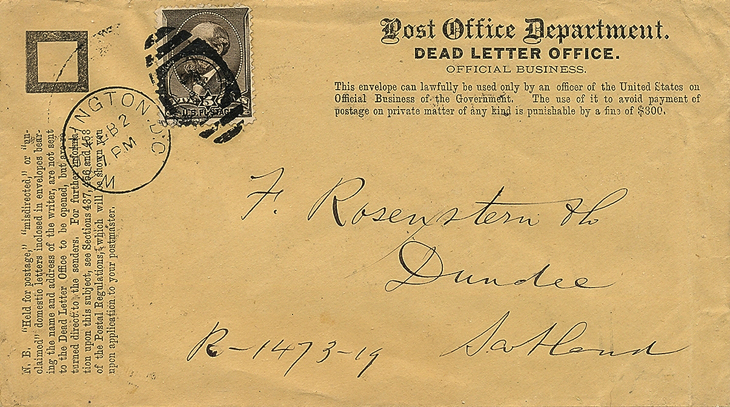 Post Office Department.
DEAD LETTER OFFICE.
OFFICIAL BUSINESS.
This envelope can lawfully be used only by an officer of the United States on
Official Business of the Government. The use of it to avoid payment of
postage on private matter of any kind is punishable by a fine of $300.
INGTON. D.C.
FEB 2
PM
N. B. "Held for postage," "misdirected," or "un-
claimed" domestic letters inclosed in envelopes bear-
ing the name and address of the writer, are not sent
to the Dead Letter Office to be opened, but are re
turned direct to the senders. For further informa
tion upon this subject, see Sections 437, 466 and 468
of the Postal Regulations, which will be shown you
upon application to your postmaster.
F. Rosenstern & Co
Dundee
R-1473-19 Scotland